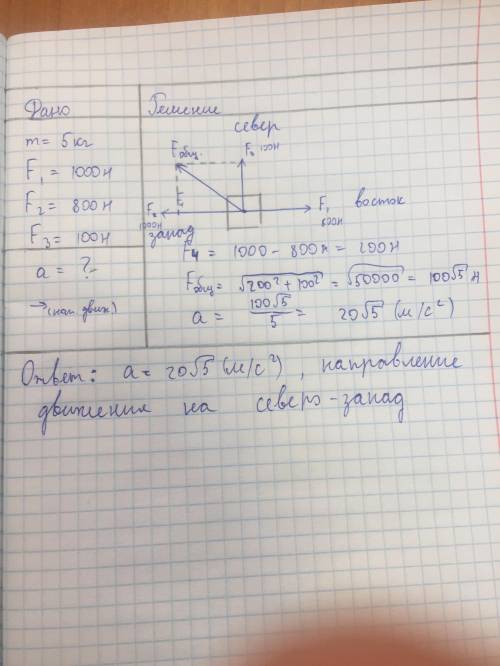 Дано
m = 5 кг
F₁ = 1000 Н
F₂ = 800 Н
F₃ = 100 Н
a = ?
→ (нап. движ)
Решение
север
Fобщ.
F₃ 100Н
F₄
F₂
1000Н
запад
F₁
800Н
восток
F₄ = 1000 - 800 Н = 200 Н
Fобщ = √200² + 100² = √50000 = 100√5 Н
a = 100√5 / 5 = 20√5 (м/с²)
Ответ: a = 20√5 (м/с²), направление
движения на северо-запад